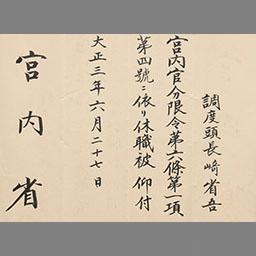 調度頭長崎省吾
宮内官分限令第六條第一項
第四號ニ依リ休職被仰付
大正三年六月二十七日
宮内省